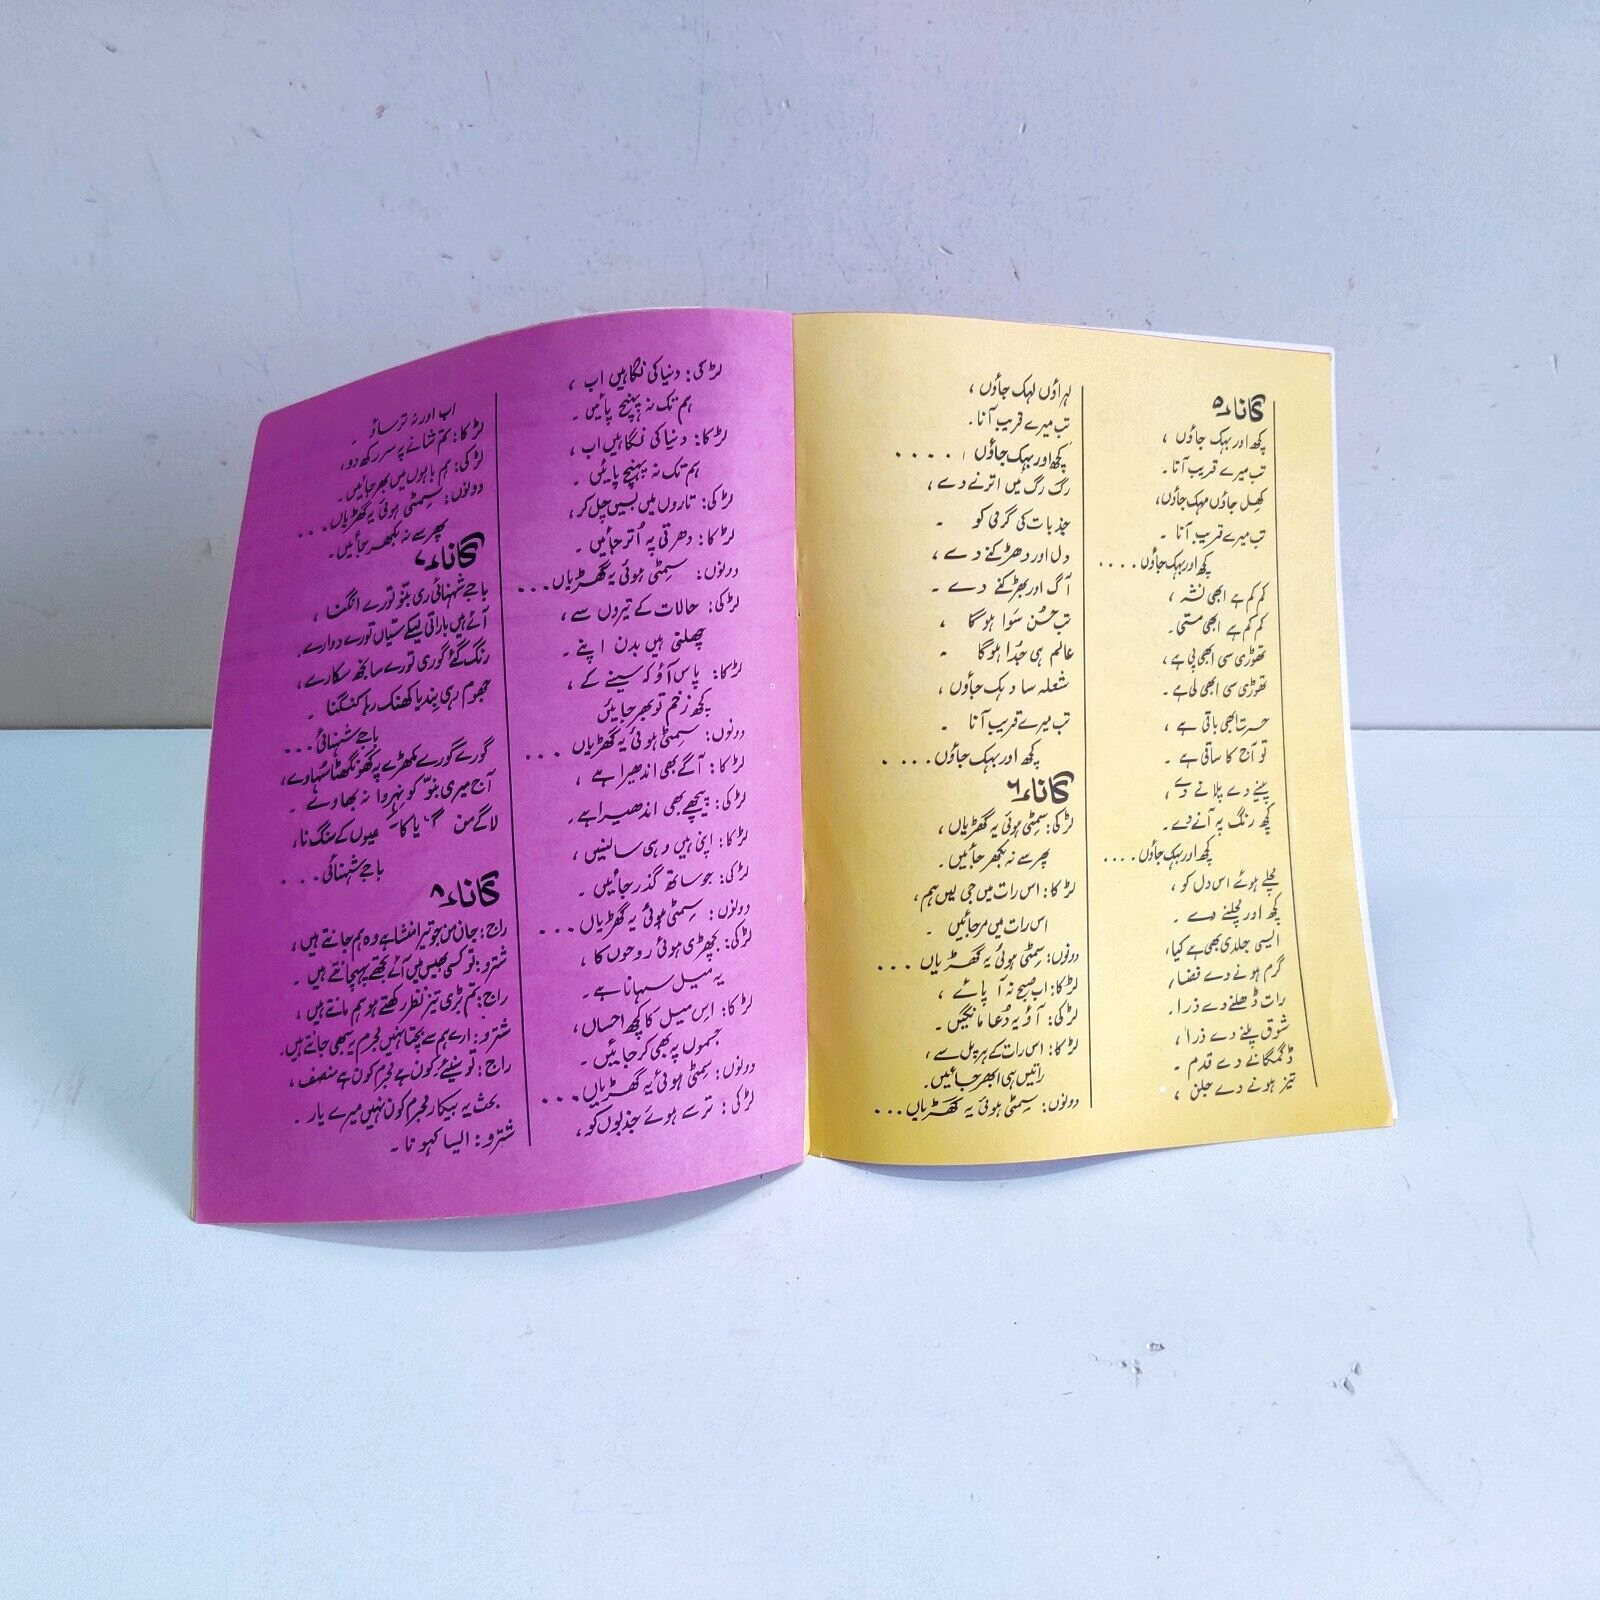 گانا ۵
کچھ اور بہک جاؤں ،
تب میرے قریب آنا ۔
کھِل جاؤں مہک جاؤں،
تب میرے قریب آنا ۔
کچھ اور بہک جاؤں ....
کم کم ہے ابھی نشہ ،
کم کم ہے ابھی مستی۔
تھوڑی سی ابھی پی ہے ،
تھوڑی سی ابھی لی ہے ۔
حسرت ابھی باقی ہے ،
تو آج کا ساقی ہے ۔
پینے دے پلانے دے ،
کچھ رنگ پہ آنے دے ۔
کچھ اور بہک جاؤں ....
مچلے ہوئے اس دل کو ،
کچھ اور مچلنے دے ۔
ایسی جلدی بھی ہے کیا،
گرم ہونے دے فضا،
رات ڈھلنے دے ذرا۔
شوق پلنے دے ذرا،
ڈگمگانے دے قدم ۔
تیز ہونے دے جلن ،
لہراؤں لہک جاؤں ،
تب میرے قریب آنا۔
کچھ اور بہک جاؤں ، ....
رگ رگ میں اترنے دے ،
جذبات کی گرمی کو ۔
دل اور دھڑکنے دے ،
آگ اور بھڑکنے دے ۔
تب حُسن سَوا ہوگا ،
عالم ہی جُدا ہوگا ۔
شعلہ سا دہک جاؤں ،
تب میرے قریب آنا ۔
کچھ اور بہک جاؤں ....
گانا ۶
لڑکی: سِمٹی ہوئی یہ گھڑیاں ،
پھر سے نہ بکھر جائیں۔
لڑکا: اس رات میں جی لیں ہم،
اس رات میں مر جائیں ۔
دونوں: سِمٹی ہوئی یہ گھڑیاں ...
لڑکا: اب صبح نہ آ پائے ،
لڑکی: آؤ یہ دُعا مانگیں۔
لڑکا: اس رات کے ہر پل سے ،
راتیں ہی ابھر جائیں۔
دونوں: سِمٹی ہوئی یہ گھڑیاں ...
لڑکی: دنیا کی نگاہیں اب ،
ہم تک نہ پہنچ پائیں ۔
لڑکا: دنیا کی نگاہیں اب ،
ہم تک نہ پہنچ پائیں ۔
لڑکی: تاروں میں بسیں چل کر ،
لڑکا: دھرتی پہ اُتر جائیں ۔
دونوں: سِمٹی ہوئی یہ گھڑیاں ...
لڑکی: حالات کے تیروں سے ،
چھلنی ہیں بدن اپنے ۔
لڑکا: پاس آؤ کہ سینے کے ،
کچھ زخم تو بھر جائیں
دونوں: سِمٹی ہوئی یہ گھڑیاں ...
لڑکا: آگے بھی اندھیرا ہے ،
لڑکی: پیچھے بھی اندھیرا ہے۔
لڑکا: اپنی ہیں وہی سانسیں ،
لڑکی: جو ساتھ گذر جائیں ۔
دونوں: سِمٹی ہوئی یہ گھڑیاں ...
لڑکی: بچھڑی ہوئی روحوں کا ،
یہ میل سہانا ہے۔
لڑکا: اس میل کا کچھ احساں ،
جسموں پہ بھی کر جائیں ۔
دونوں: سِمٹی ہوئی یہ گھڑیاں ...
لڑکی: ترسے ہوئے جذبوں کو ،
اب اور نہ ترساؤ ۔
لڑکا: تم شانے پہ سر رکھ دو،
لڑکی: ہم باہوں میں بھر جائیں۔
دونوں: سِمٹی ہوئی یہ گھڑیاں ...
پھر سے نہ بکھر جائیں۔
گانا ۷
باجے شہنائی ری بنّو تورے انگنا ،
آئے ہیں باراتی لیکے سیّاں تورے دوارے۔
رنگ گئے گوری تورے سانجھ سکارے ،
جھوم رہی بِندیا کھنک رہا کنگنا ۔
باجے شہنائی...
گورے گورے مکھڑے پر گھونگھٹا سُہاوے،
آج میری بنّو کو نہروا نہ بھاونے ۔
لاگے من ییوں کے سنگ نا ،
باجے شہنائی ...
گانا ۸
راج: جانِ من جو تیرا منشا ہے وہ ہم جانتے ہیں ،
شترو: تو کسی بھیس میں آئے تجھے پہچانتے ہیں ۔
راج: تم بڑی تیز نظر رکھتے ہو ہم مانتے ہیں ،
شترو: ارے ہم سے بچتا نہیں مجرم یہ سبھی جانتے ہیں۔
راج: تو سنیئے کون ہے مجرم کون ہے منصف ،
بحث یہ بیکار مجرم کون نہیں میرے یار ۔
شترو: ایسا کہو نا ۔